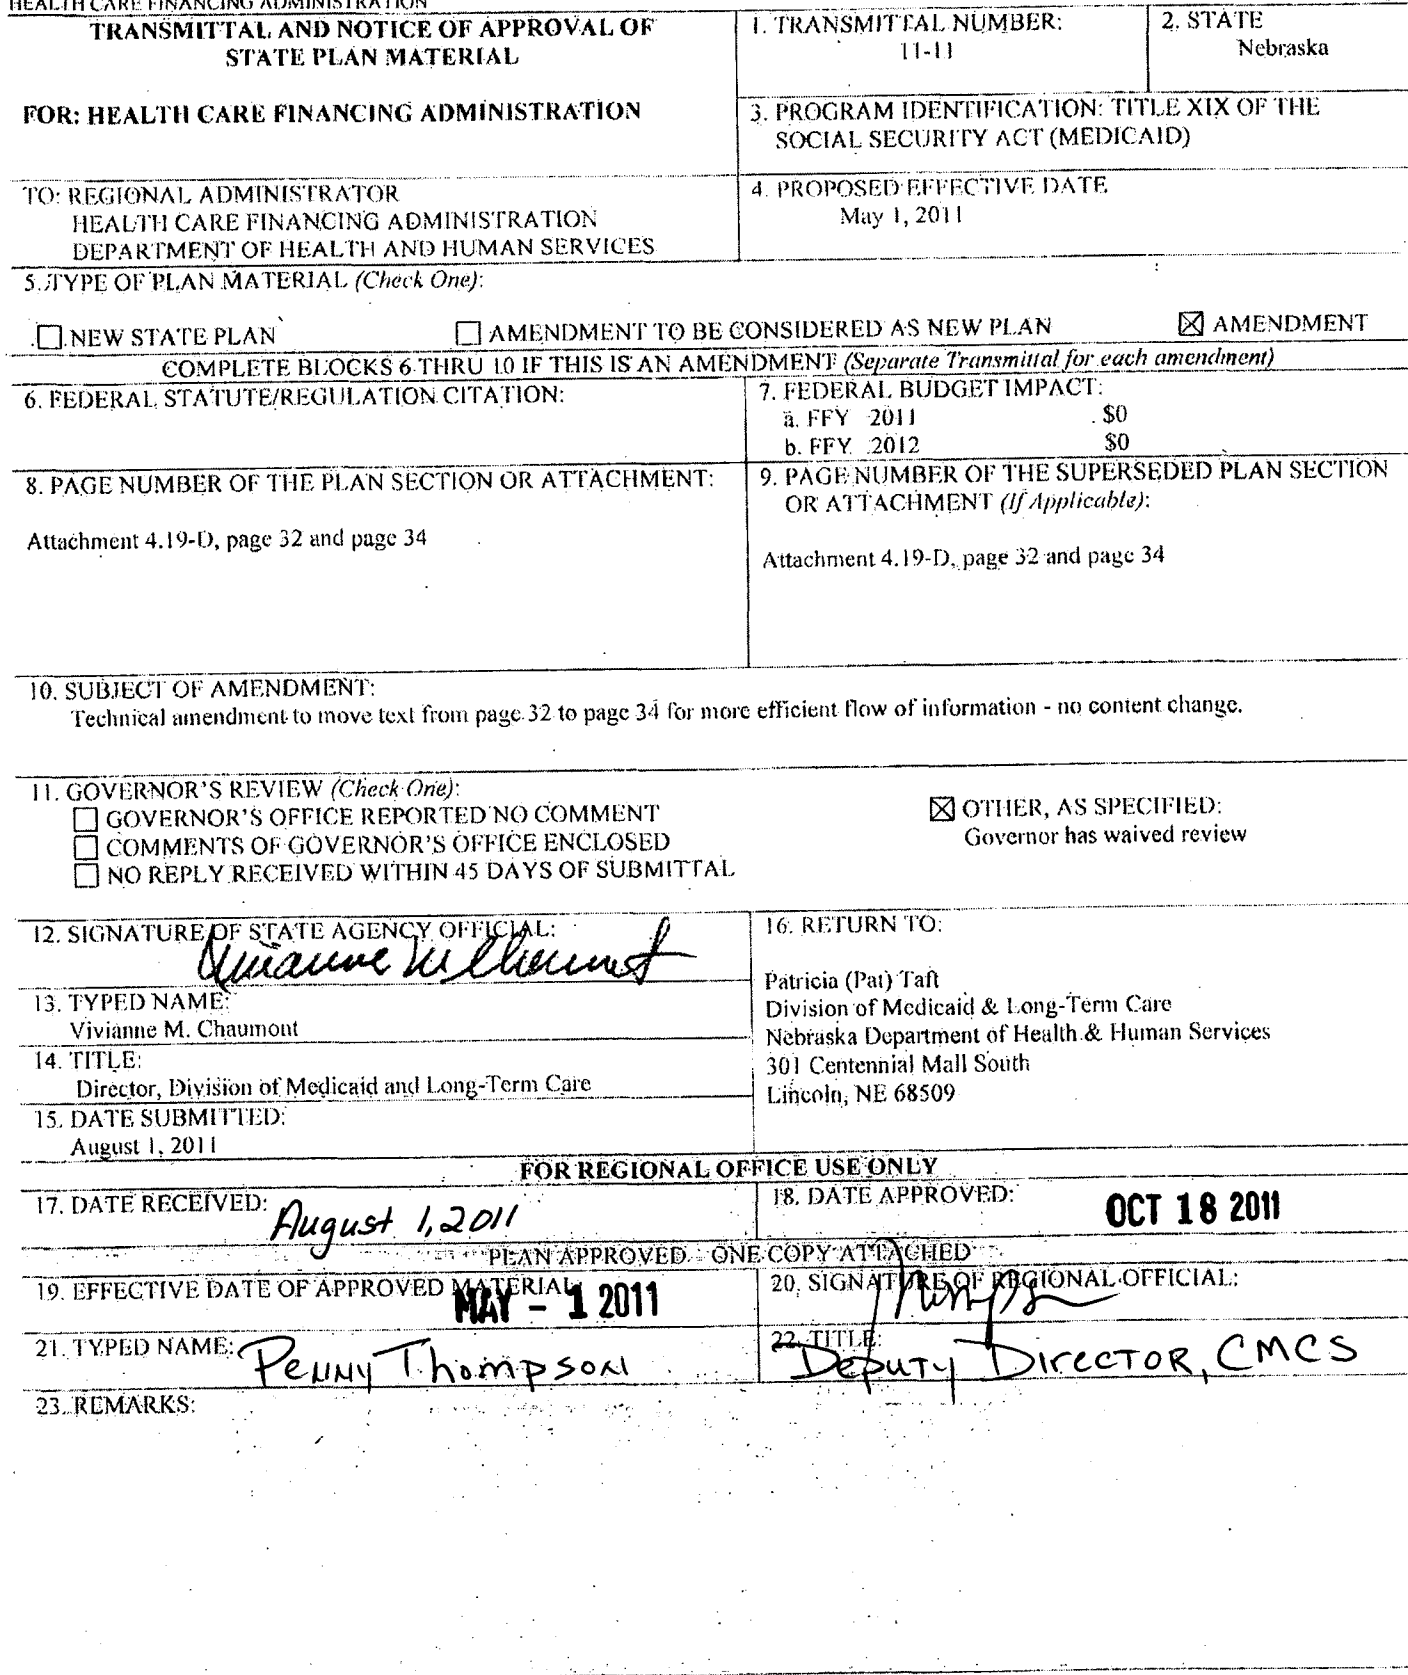 HEALTH CARE FINANCING ADMINISTRATION
TRANSMITTAL AND NOTICE OF APPROVAL OF
STATE PLAN MATERIAL
FOR: HEALTH CARE FINANCING ADMINISTRATION
1. TRANSMITTAL NUMBER:
11-11
2. STATE
Nebraska
3. PROGRAM IDENTIFICATION: TITLE XIX OF THE
SOCIAL SECURITY ACT (MEDICAID)
TO: REGIONAL ADMINISTRATOR
HEALTH CARE FINANCING ADMINISTRATION
DEPARTMENT OF HEALTH AND HUMAN SERVICES
4. PROPOSED EFFECTIVE DATE
May 1, 2011
5. TYPE OF PLAN MATERIAL (Check One):
☐ NEW STATE PLAN ☐ AMENDMENT TO BE CONSIDERED AS NEW PLAN ☒ AMENDMENT
COMPLETE BLOCKS 6 THRU 10 IF THIS IS AN AMENDMENT (Separate Transmittal for each amendment)
6. FEDERAL STATUTE/REGULATION CITATION:
7. FEDERAL BUDGET IMPACT:
a. FFY 2011 $0
b. FFY 2012 $0
8. PAGE NUMBER OF THE PLAN SECTION OR ATTACHMENT:
Attachment 4.19-D, page 32 and page 34
9. PAGE NUMBER OF THE SUPERSEDED PLAN SECTION
OR ATTACHMENT (If Applicable):
Attachment 4.19-D, page 32 and page 34
10. SUBJECT OF AMENDMENT:
Technical amendment to move text from page 32 to page 34 for more efficient flow of information - no content change.
11. GOVERNOR'S REVIEW (Check One):
☐ GOVERNOR'S OFFICE REPORTED NO COMMENT
☐ COMMENTS OF GOVERNOR'S OFFICE ENCLOSED
☐ NO REPLY RECEIVED WITHIN 45 DAYS OF SUBMITTAL
☒ OTHER, AS SPECIFIED:
Governor has waived review
12. SIGNATURE OF STATE AGENCY OFFICIAL:
13. TYPED NAME:
Vivianne M. Chaumont
14. TITLE:
Director, Division of Medicaid and Long-Term Care
15. DATE SUBMITTED:
August 1, 2011
16. RETURN TO:
Patricia (Pat) Taft
Division of Medicaid & Long-Term Care
Nebraska Department of Health & Human Services
301 Centennial Mall South
Lincoln, NE 68509
FOR REGIONAL OFFICE USE ONLY
17. DATE RECEIVED: August 1, 2011
18. DATE APPROVED: OCT 18 2011
PLAN APPROVED - ONE COPY ATTACHED
19. EFFECTIVE DATE OF APPROVED MATERIAL:
MAY - 1 2011
20. SIGNATURE OF REGIONAL OFFICIAL:
21. TYPED NAME: Penny Thompson
22. TITLE:
Deputy Director, CMCS
23. REMARKS: